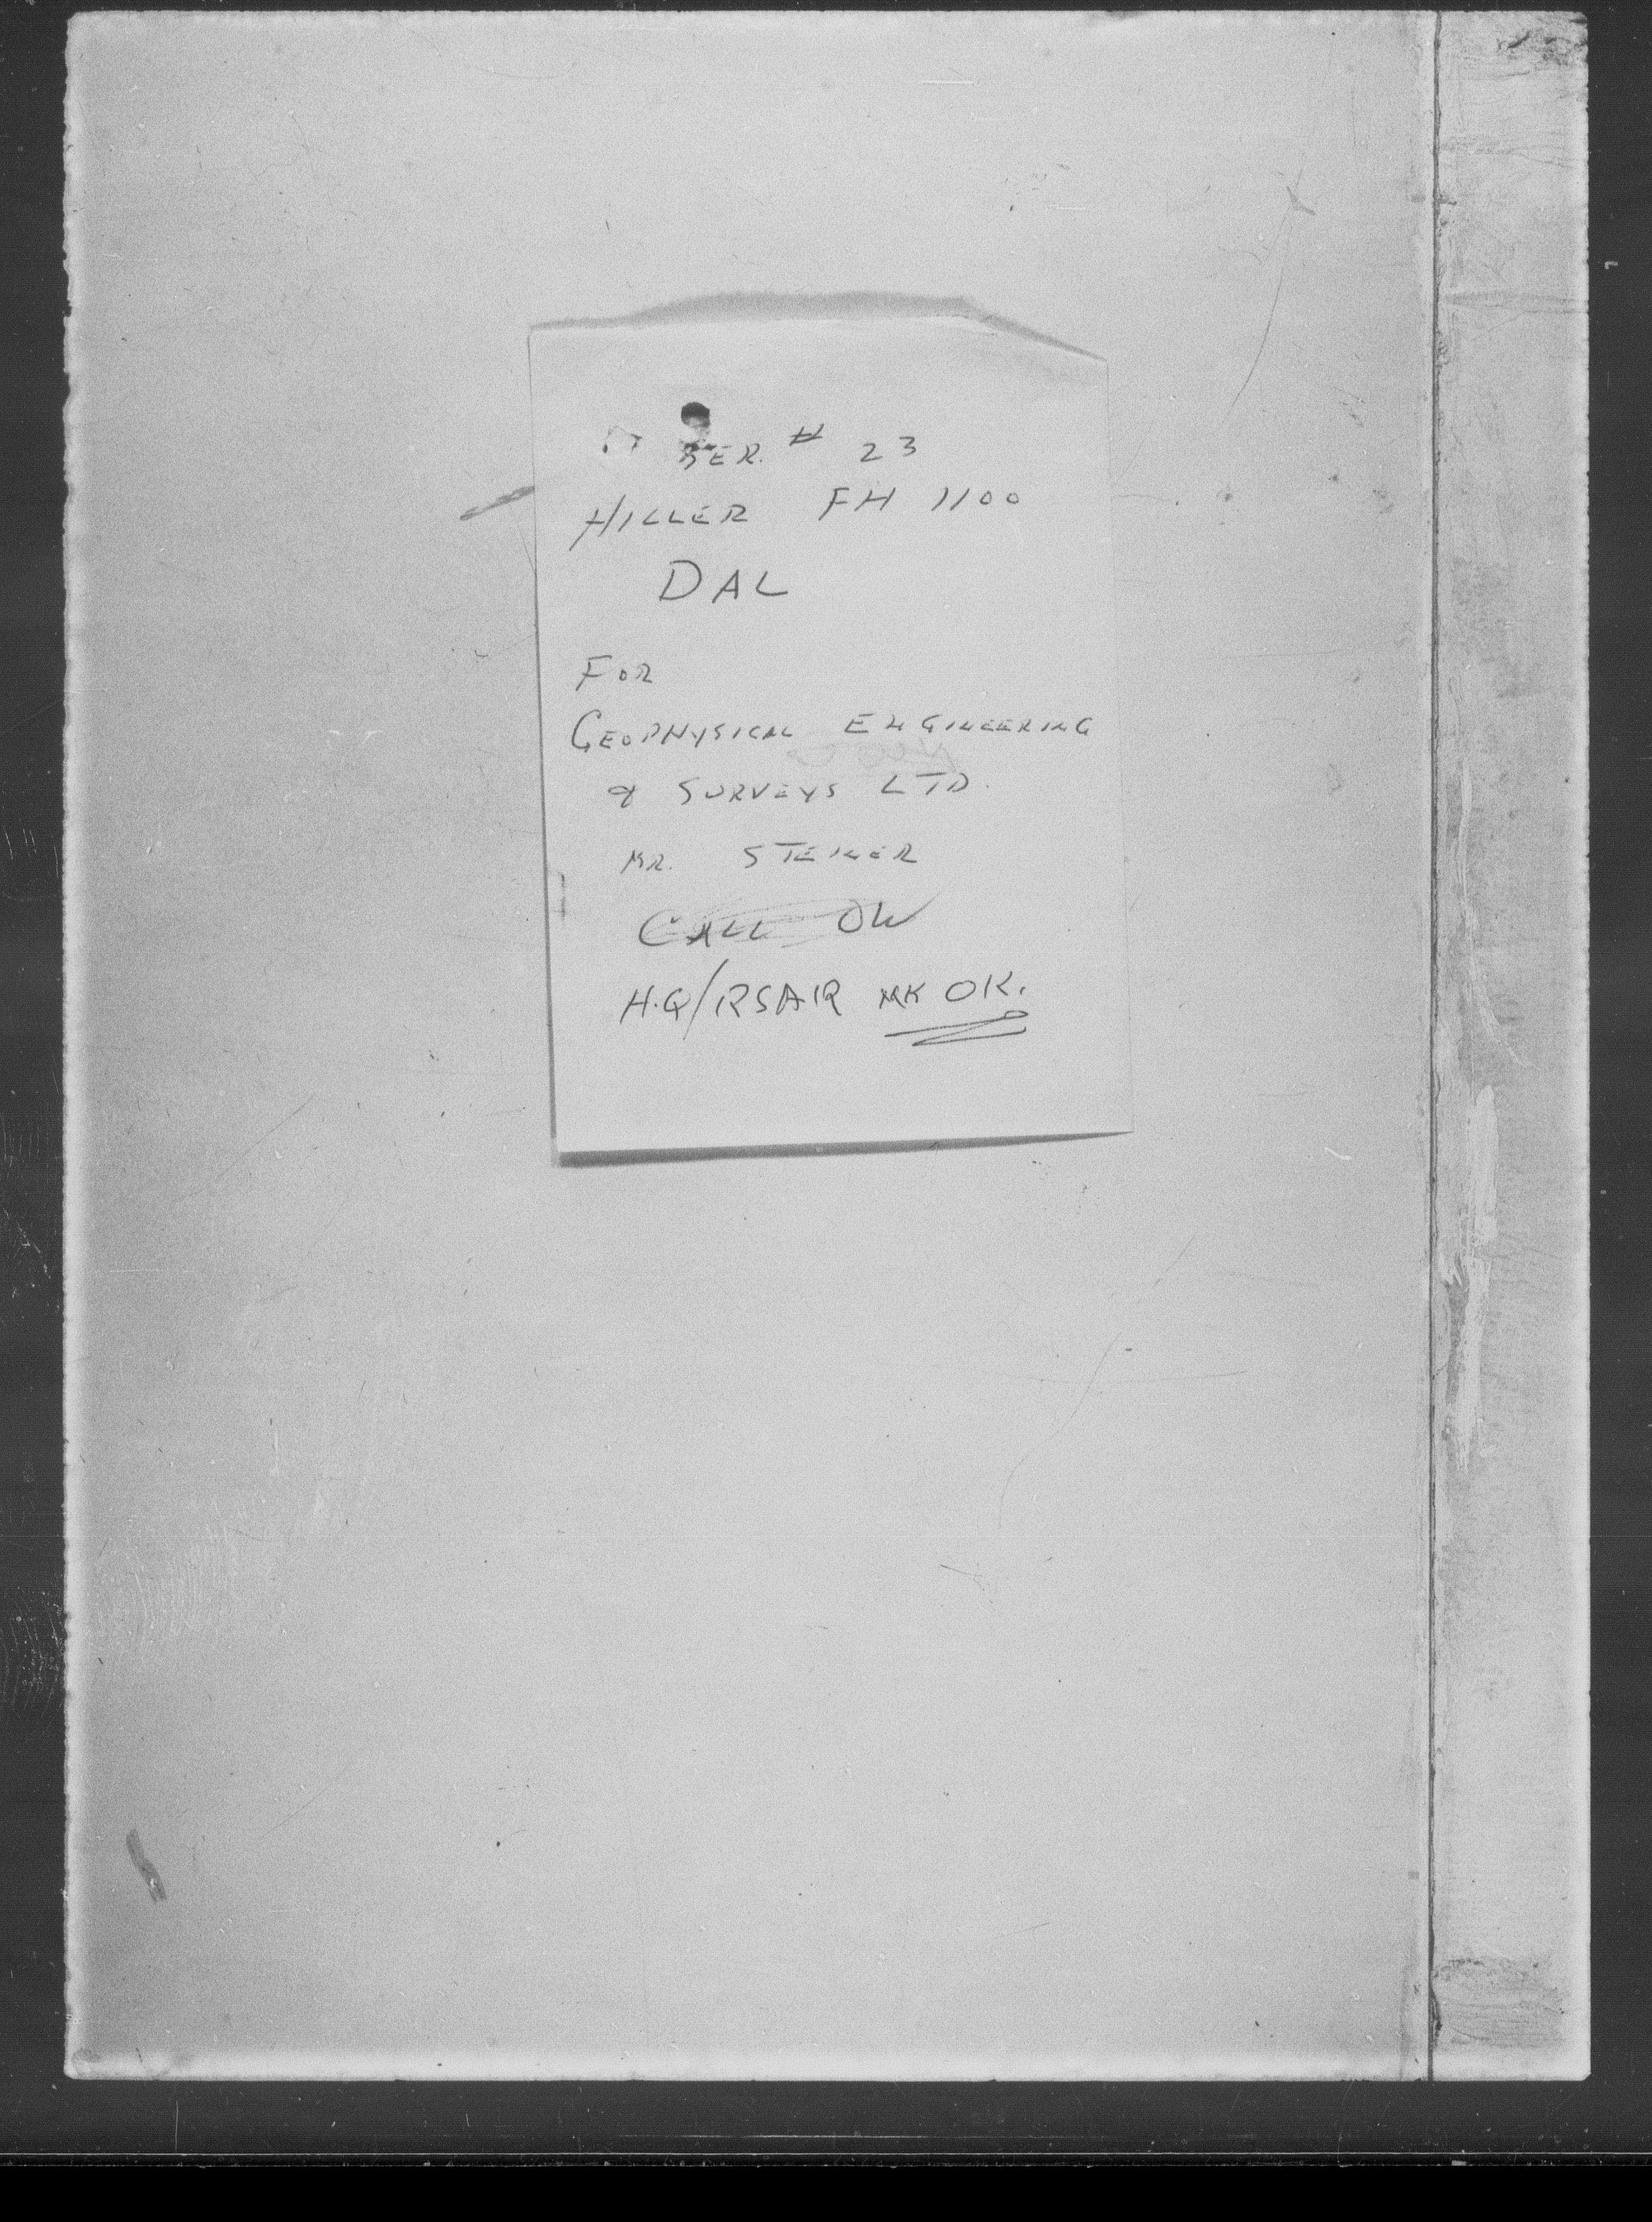 SER. # 23
HILLER FH 1100
DAL
FOR
GEOPHYSICAL ENGINEERING
& SURVEYS LTD.
MR. STEINER
CALL
H.Q/RSAR MK OK.